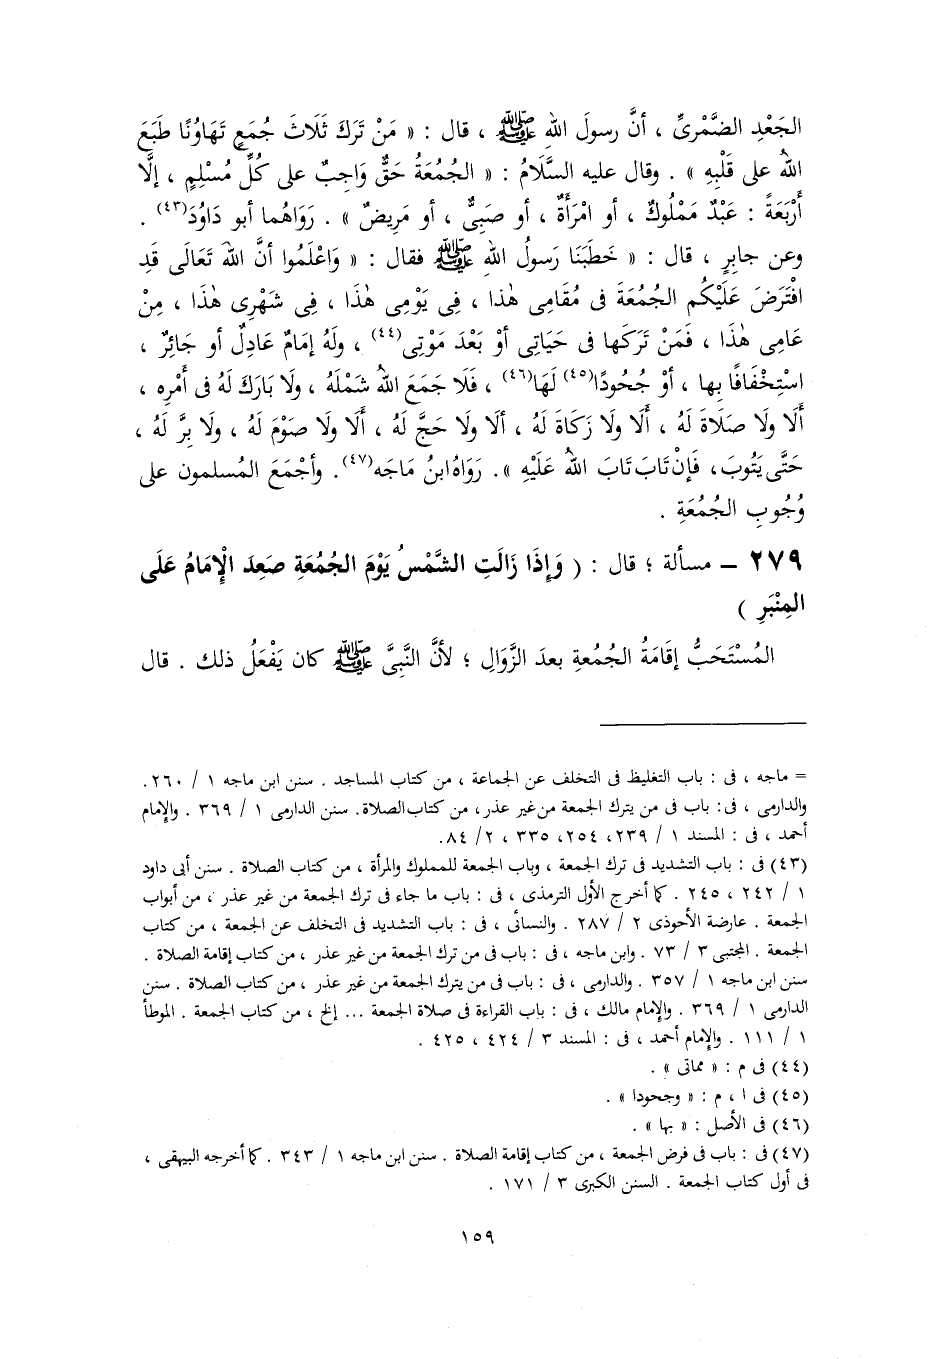 الجَعْدِ الضَّمْرِىِّ ، أنَّ رسولَ اللهِ ﷺ ، قال : « مَنْ تَرَكَ ثَلَاثَ جُمَعٍ تَهَاوُنًا طَبَعَ
اللهُ على قَلْبِهِ » . وقال عليه السَّلَامُ : « الجُمُعَةُ حَقٌّ وَاجِبٌ على كُلِّ مُسْلِمٍ ، إلَّا
أَرْبَعَةً : عَبْدٌ مَمْلُوكٌ ، أو امْرَأَةٌ ، أو صَبِىٌّ ، أو مَرِيضٌ » . رَوَاهُما أبو دَاوُدَ(٤٣) .
وعن جابِرٍ ، قال : « خَطَبَنَا رَسولُ اللهِ ﷺ فقال : « وَاعْلَمُوا أنَّ اللهَ تَعَالَى قَدِ
افْتَرَضَ عَلَيْكُم الجُمُعَةَ فى مَقَامِى هٰذا ، فِى يَوْمِى هٰذَا ، فِى شَهْرِى هٰذَا ، مِنْ
عَامِى هٰذَا ، فَمَنْ تَرَكَها فى حَيَاتِى أوْ بَعْدَ مَوْتِى(٤٤) ، ولَهُ إمَامٌ عَادِلٌ أو جَائِرٌ ،
اسْتِخْفَافًا بها ، أوْ جُحُودًا(٤٥) لَهَا(٤٦) ، فَلَا جَمَعَ اللهُ شَمْلَهُ ، ولَا بَارَكَ لَهُ فى أَمْرِه ،
أَلَا ولَا صَلَاةَ لَهُ ، أَلَا ولَا زَكَاةَ لَهُ ، ألَا ولَا حَجَّ لَهُ ، أَلَا ولَا صَوْمَ لَهُ ، ولَا بِرَّ لَهُ ،
حَتَّى يَتُوبَ ، فَإنْ تَابَ تَابَ اللهُ عَلَيْهِ » . رَوَاهُ ابنُ مَاجَه(٤٧) . وأجْمَعَ المُسلمون على
وُجُوبِ الجُمُعَةِ .
٢٧٩ – مسألة ؛ قال : ( وَإِذَا زَالَتِ الشَّمْسُ يَوْمَ الجُمُعَةِ صَعِدَ الْإِمَامُ عَلَى
المِنْبَرِ )
المُسْتَحَبُّ إقَامَةُ الجُمُعةِ بعدَ الزَّوَالِ ؛ لأنَّ النَّبِىَّ ﷺ كان يَفْعَلُ ذلك . قال
= ماجه ، فى : باب التغليظ فى التخلف عن الجماعة ، من كتاب المساجد . سنن ابن ماجه ١ / ٢٦٠ .
والدارمى ، فى : باب فى من يترك الجمعة من غير عذر ، من كتاب الصلاة . سنن الدارمى ١ / ٣٦٩ . والإمام
أحمد ، فى : المسند ١ / ٢٣٩ ، ٢٥٤ ، ٣٣٥ ، ٢ / ٨٤ .
(٤٣) فى : باب التشديد فى ترك الجمعة ، وباب الجمعة للمملوك والمرأة ، من كتاب الصلاة . سنن أبى داود
١ / ٢٤٢ ، ٢٤٥ . كما أخرج الأول الترمذى ، فى : باب ما جاء فى ترك الجمعة من غير عذر ، من أبواب
الجمعة . عارضة الأحوذى ٢ / ٢٨٧ . والنسائى ، فى : باب التشديد فى التخلف عن الجمعة ، من كتاب
الجمعة . المجتبى ٣ / ٧٣ . وابن ماجه ، فى : باب فى من ترك الجمعة من غير عذر ، من كتاب إقامة الصلاة .
سنن ابن ماجه ١ / ٣٥٧ . والدارمى ، فى : باب فى من يترك الجمعة من غير عذر ، من كتاب الصلاة . سنن
الدارمى ١ / ٣٦٩ . والإمام مالك ، فى : باب القراءة فى صلاة الجمعة ... إلخ ، من كتاب الجمعة . الموطأ
١ / ١١١ . والإمام أحمد ، فى : المسند ٣ / ٤٢٤ ، ٤٢٥ .
(٤٤) فى م : « مماتى » .
(٤٥) فى ا ، م : « وجحودا » .
(٤٦) فى الأصل : « بها » .
(٤٧) فى : باب فى فرض الجمعة ، من كتاب إقامة الصلاة . سنن ابن ماجه ١ / ٣٤٣ . كما أخرجه البيهقى ،
فى أول كتاب الجمعة . السنن الكبرى ٣ / ١٧١ .
١٥٩